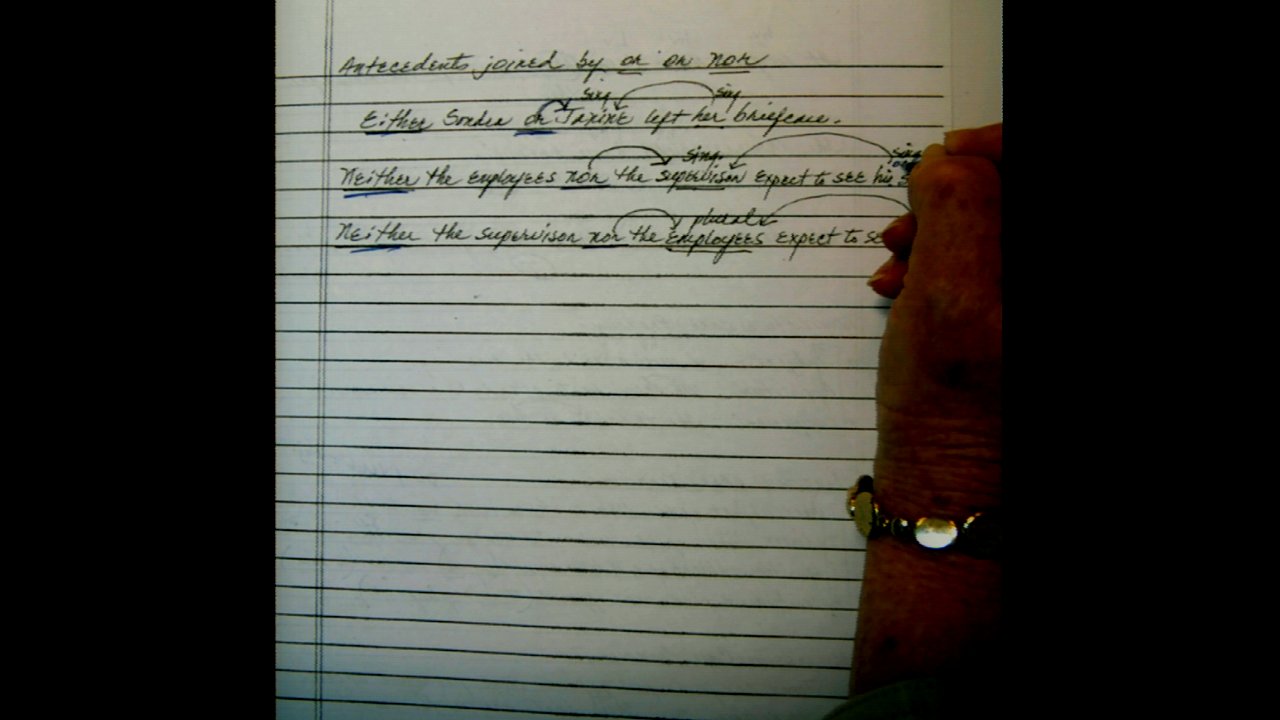 Antecedents joined by or or nor
sing sing
Either Sondra or Janine left her briefcase.
sing. sing
Neither the employees nor the supervisor expect to see his
plural
Neither the supervisor nor the employees expect to